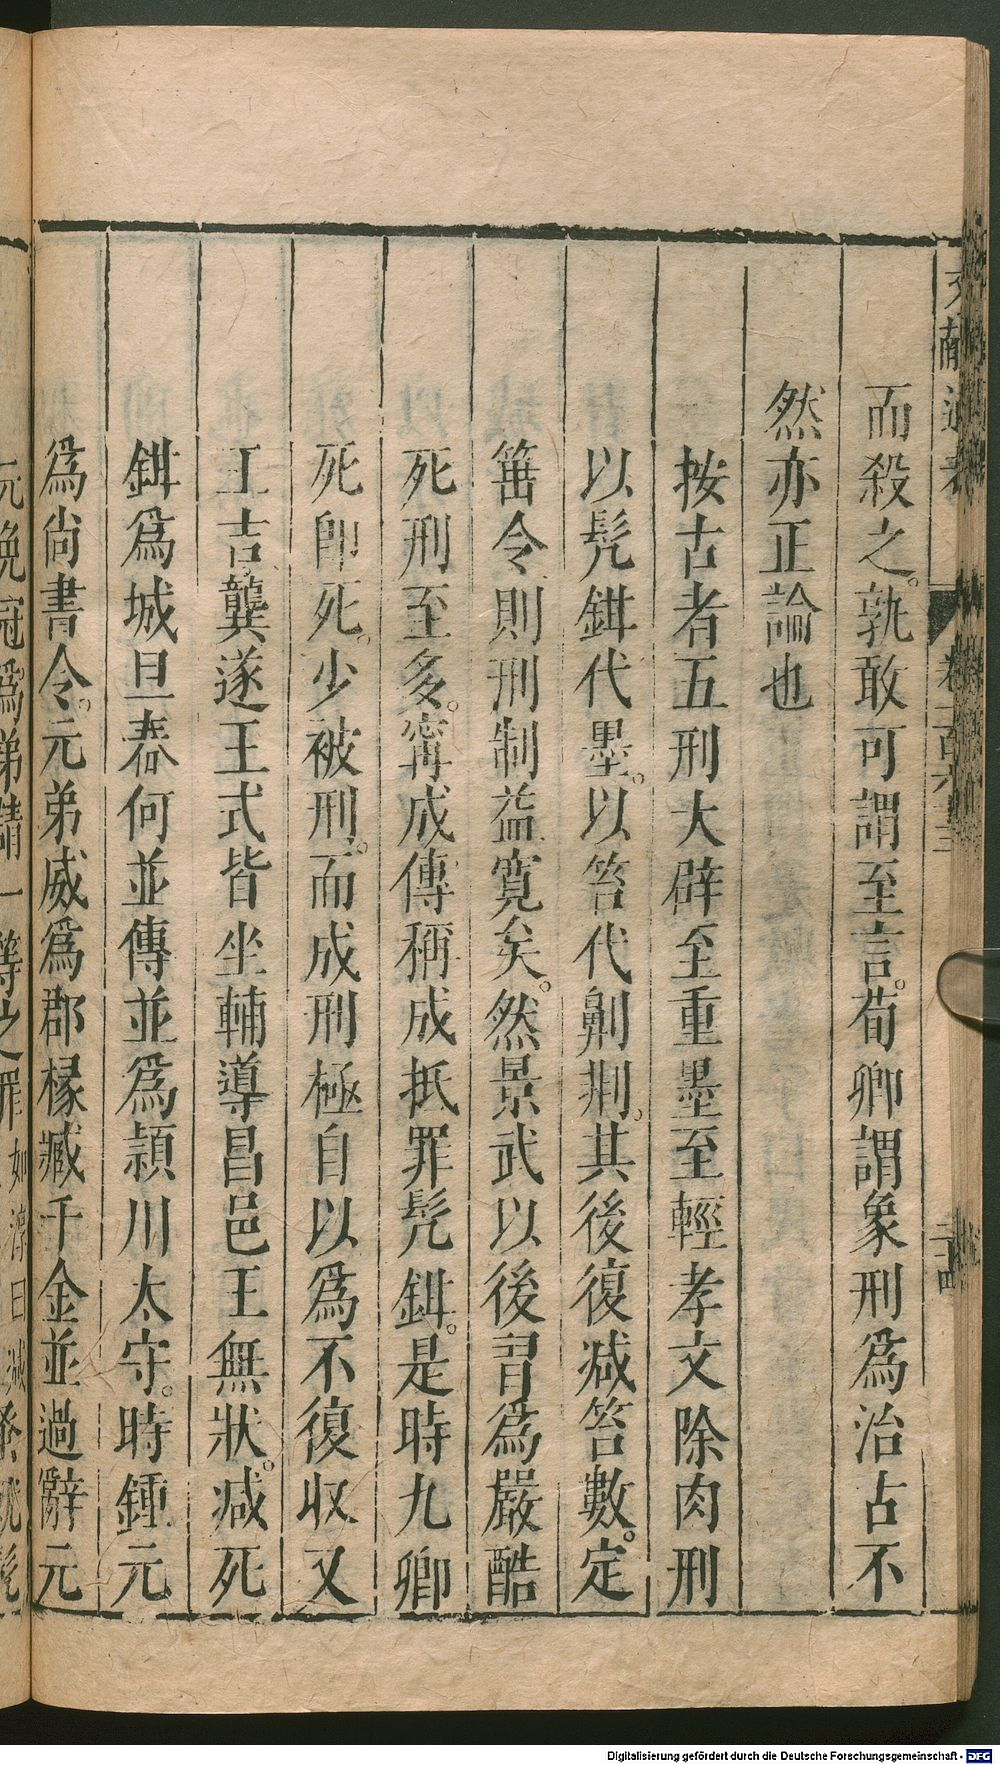 而殺之。孰敢可謂至言。荀卿謂象刑爲治古不
然亦正論也
按古者五刑大辟至重墨至輕孝文除肉刑
以髡鉗代墨。以笞代劓剕。其後復减笞數。定
箠令則刑制益寬矣。然景武以後習爲嚴酷
死刑至多。甯成傳稱成抵罪髡鉗。是時九卿
死卽死。少被刑。而成刑極自以爲不復収又
王吉龔遂王式皆坐輔導昌邑王無狀。减死
鉗爲城旦舂何並傳並爲潁川太守。時鍾元
爲尚書令。元弟威爲郡掾臧千金並過辭元
元免冠爲弟請一等之罪如淳曰减
Digitalisierung gefördert durch die Deutsche Forschungsgemeinschaft - DFG